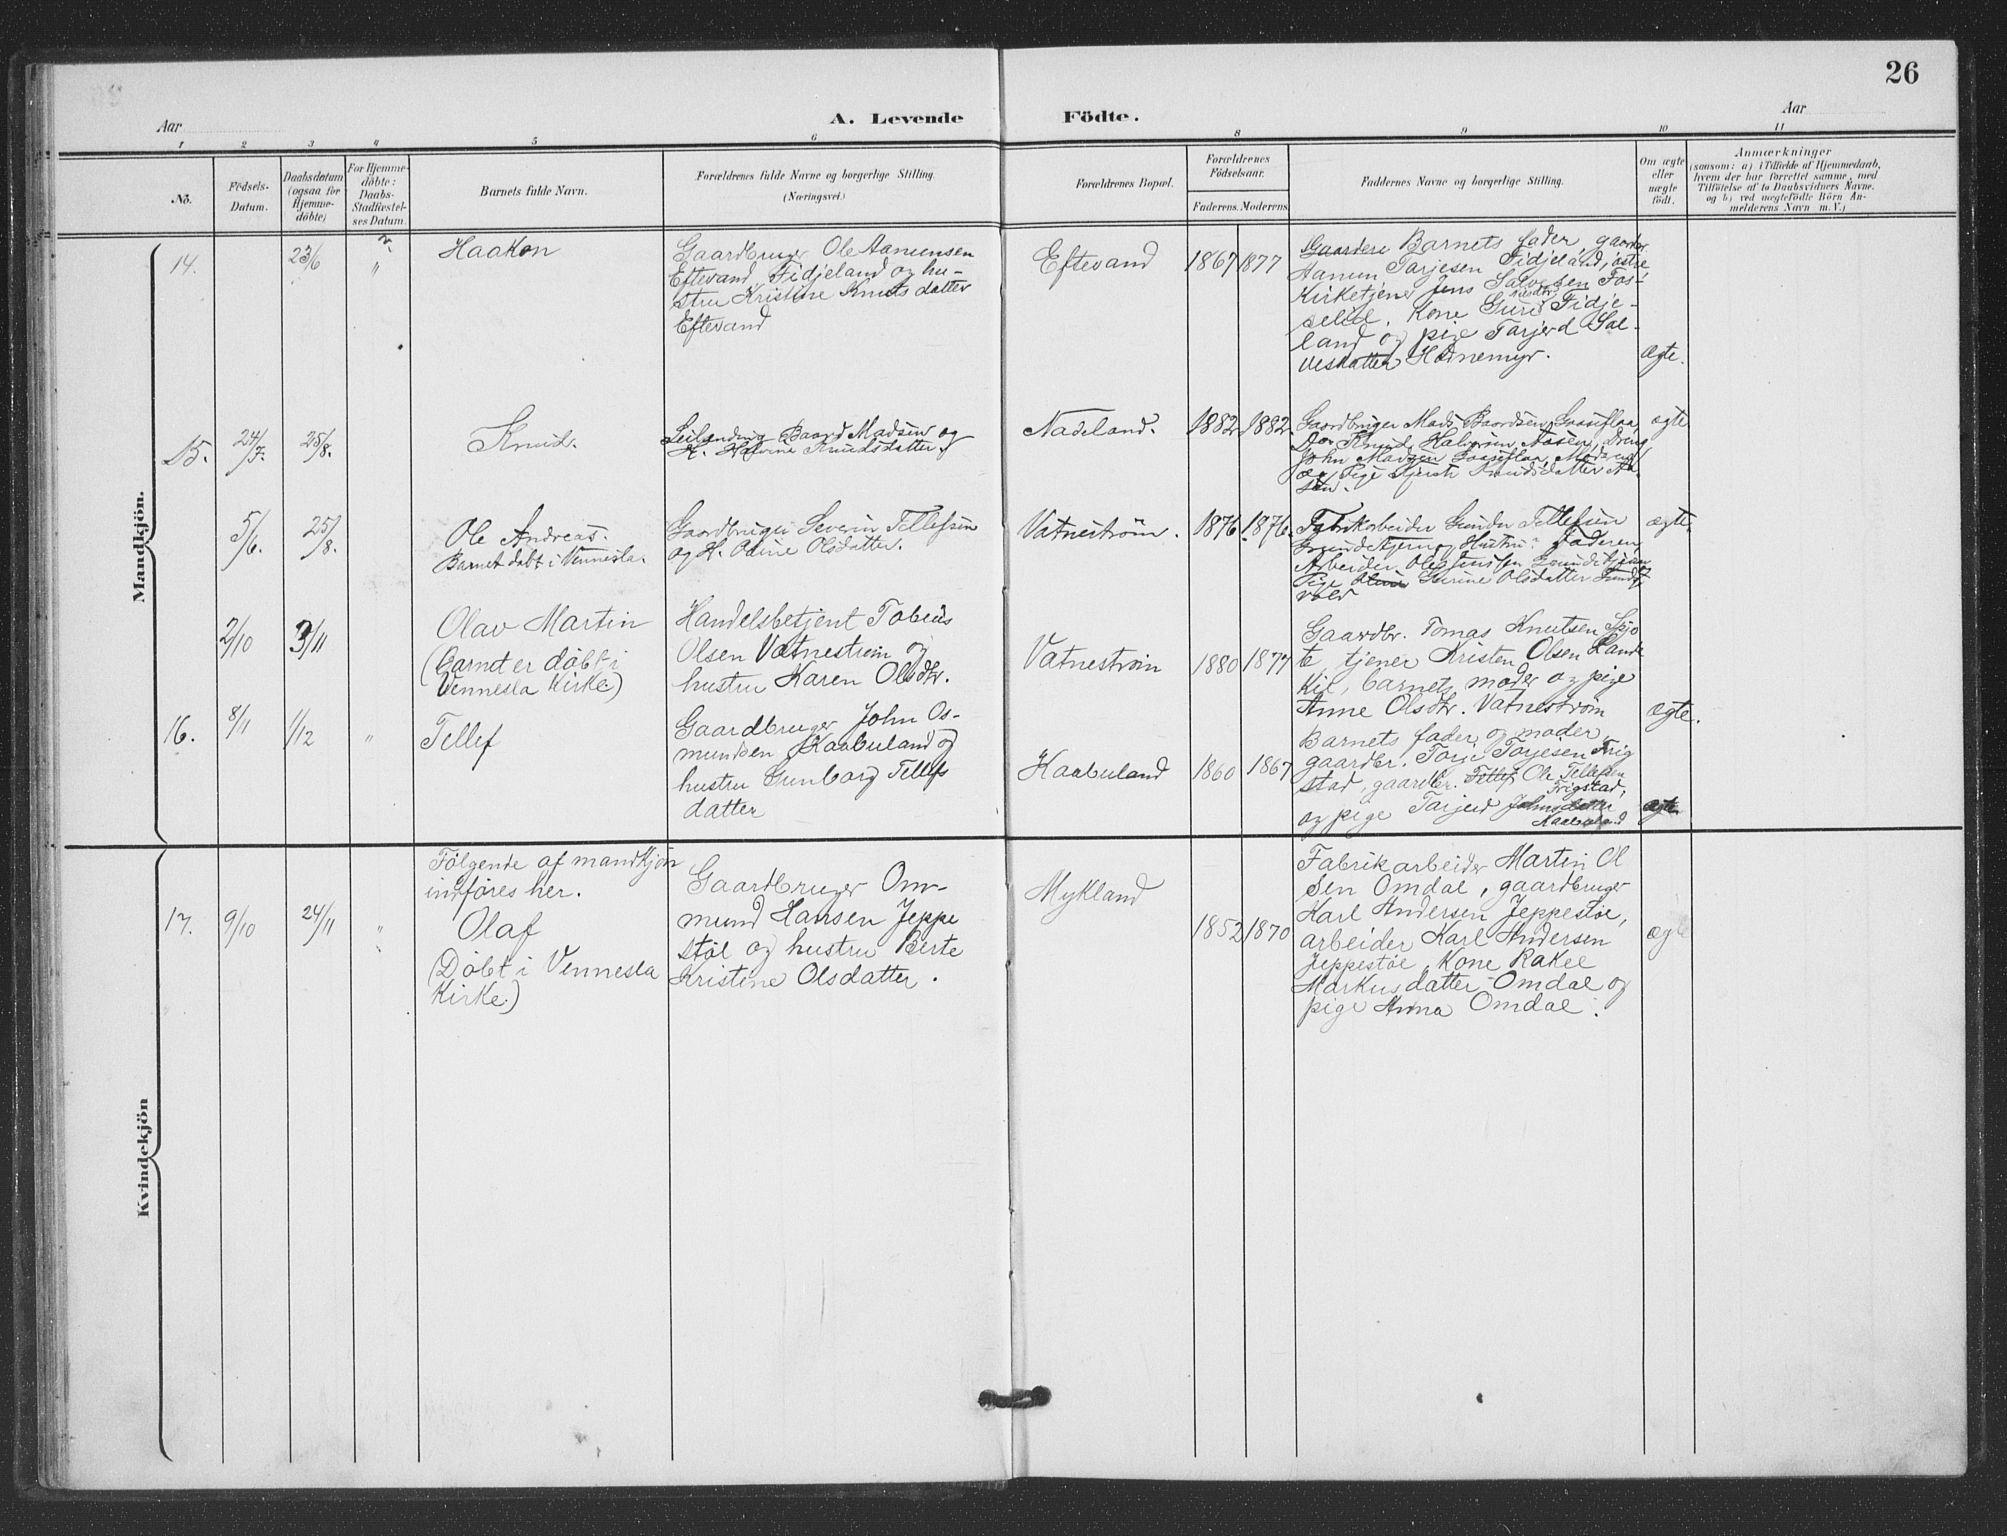 26
Aar
A. Levende
Födte.
Aar
1
2
3
4
5
6
8
9
10
11
No.
Födsels-
Datum.
Daabsdatum
(ogsaa for
Hjemme-
döbte)
For Hjemme-
döbte:
Daabs-
Stadfæstel-
ses Datum.
Barnets fulde Navn.
Forældrenes fulde Navne og borgerlige Stilling.
(Næringsvei.)
Forældrenes Bopæl.
Forældrenes
Födselsaar.
Faderens.
Moderens.
Faddernes Navne og borgerlige Stilling.
Om ægte
eller
uægte
födt.
Anmærkninger
(saasom: a) i Tilfælde af Hjemmedaab,
hvem der har forrettet samme, med
Tilföielse af to Daabsvidners Navne.
og b) ved uægtefödte Börn An-
melderens Navn m. V.)
Mandkjön.
14.
23/6
"
Haakon
Gaardbruger Ole Aanunsen
Eftevand, Fidjeland og hu-
stru Kristine Knutsdatter
Eftevand
Eftevand
1867
1877
Barnets fader, gaardbr.
Aanun Tarjesen Fidjeland, østre,
Kirketjener Jens Salvesen Fos-
selid. Kone Guri Fidje-
land og pige Tarjerd Sal-
vesdatter Hodnemyr.
ægte.
15.
24/7.
25/8.
Knud.
Leilending Baard Madsen og
H. Halvine Knudsdatter.
Nadeland.
1882
1882.
Gaardbruger Mads Baardsen
Knud Halvorsen Aasen, dreng
John Madsen
og Pige Knudsdatter Aa-
sen.
ægte
5/6.
25/8.
Ole Andreas.
Barnet døbt i Vennesla.
Gaardbruger Severin Tellefsen
og H. Odine Olsdatter.
Vatnestrøm.
1876
1876.
Fabrikarbeider Gunder Tellefsen
og Hustru. Faderen
Arbeider Ole
Pige Gurine Olsdatter
ægte
2/10
3/11
Olav Martin
(Barnet er døbt i
Vennesla Kirke)
Handelsbetjent Tobias
Olsen Vatnestrøm og
hustru Karen Olsdtr.
Vatnestrøm
1880
1877
Gaardbr. Tomas Knutsen
tjener Kristen Olsen Lande
Kil, barnets moder og pige
Anne Olsdtr. Vatnestrøm
ægte.
16.
8/11
1/12
"
Tellef
Gaardbruger John Os-
mundsen Kaabuland og
hustru Gunborg Tellefs
datter
Kaabuland
1860
1867
Barnets fader og moder,
gaardbr. Tarje Tarjesen Frig
stad, gaardbr. Tellef Ole Tellefsen
Frigstad,
og pige Tarjerd Johnsdatter
Kaabuland
ægte
Kvindekjön
Følgende af mandkjøn
indføres her.
17.
9/10
24/11
"
Olaf
(Døbt i Vennesla
Kirke)
Gaardbruger Om-
mund Hansen Jeppe
støl og hustru Berte
Kristine Olsdatter.
Mykland
1852
1870
Fabrikarbeider Martin Ol
sen Omdal, gaardbruger
Karl Andersen Jeppestøl,
arbeider Karl Andersen
Jeppestøl, Kone Rakel
Markusdatter Omdal og
pige Anna Omdal.
ægte